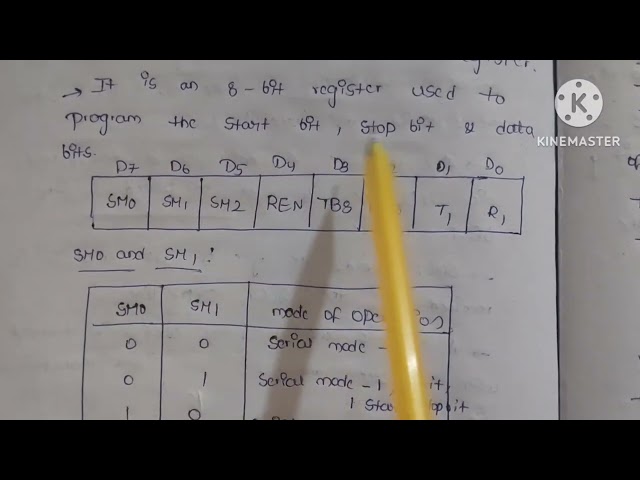 → It is an 8-bit register used to
program the start bit, stop bit & data
bits.
D7 D6 D5 D4 D3 D1 D0
SM0 SM1 SM2 REN TB8 T1 R1
SM0 and SM1:
SM0 SM1 mode of
0 0 Serial mode -
0 1 Serial mode - 1
1 Start
1 0
K
KINEMASTER